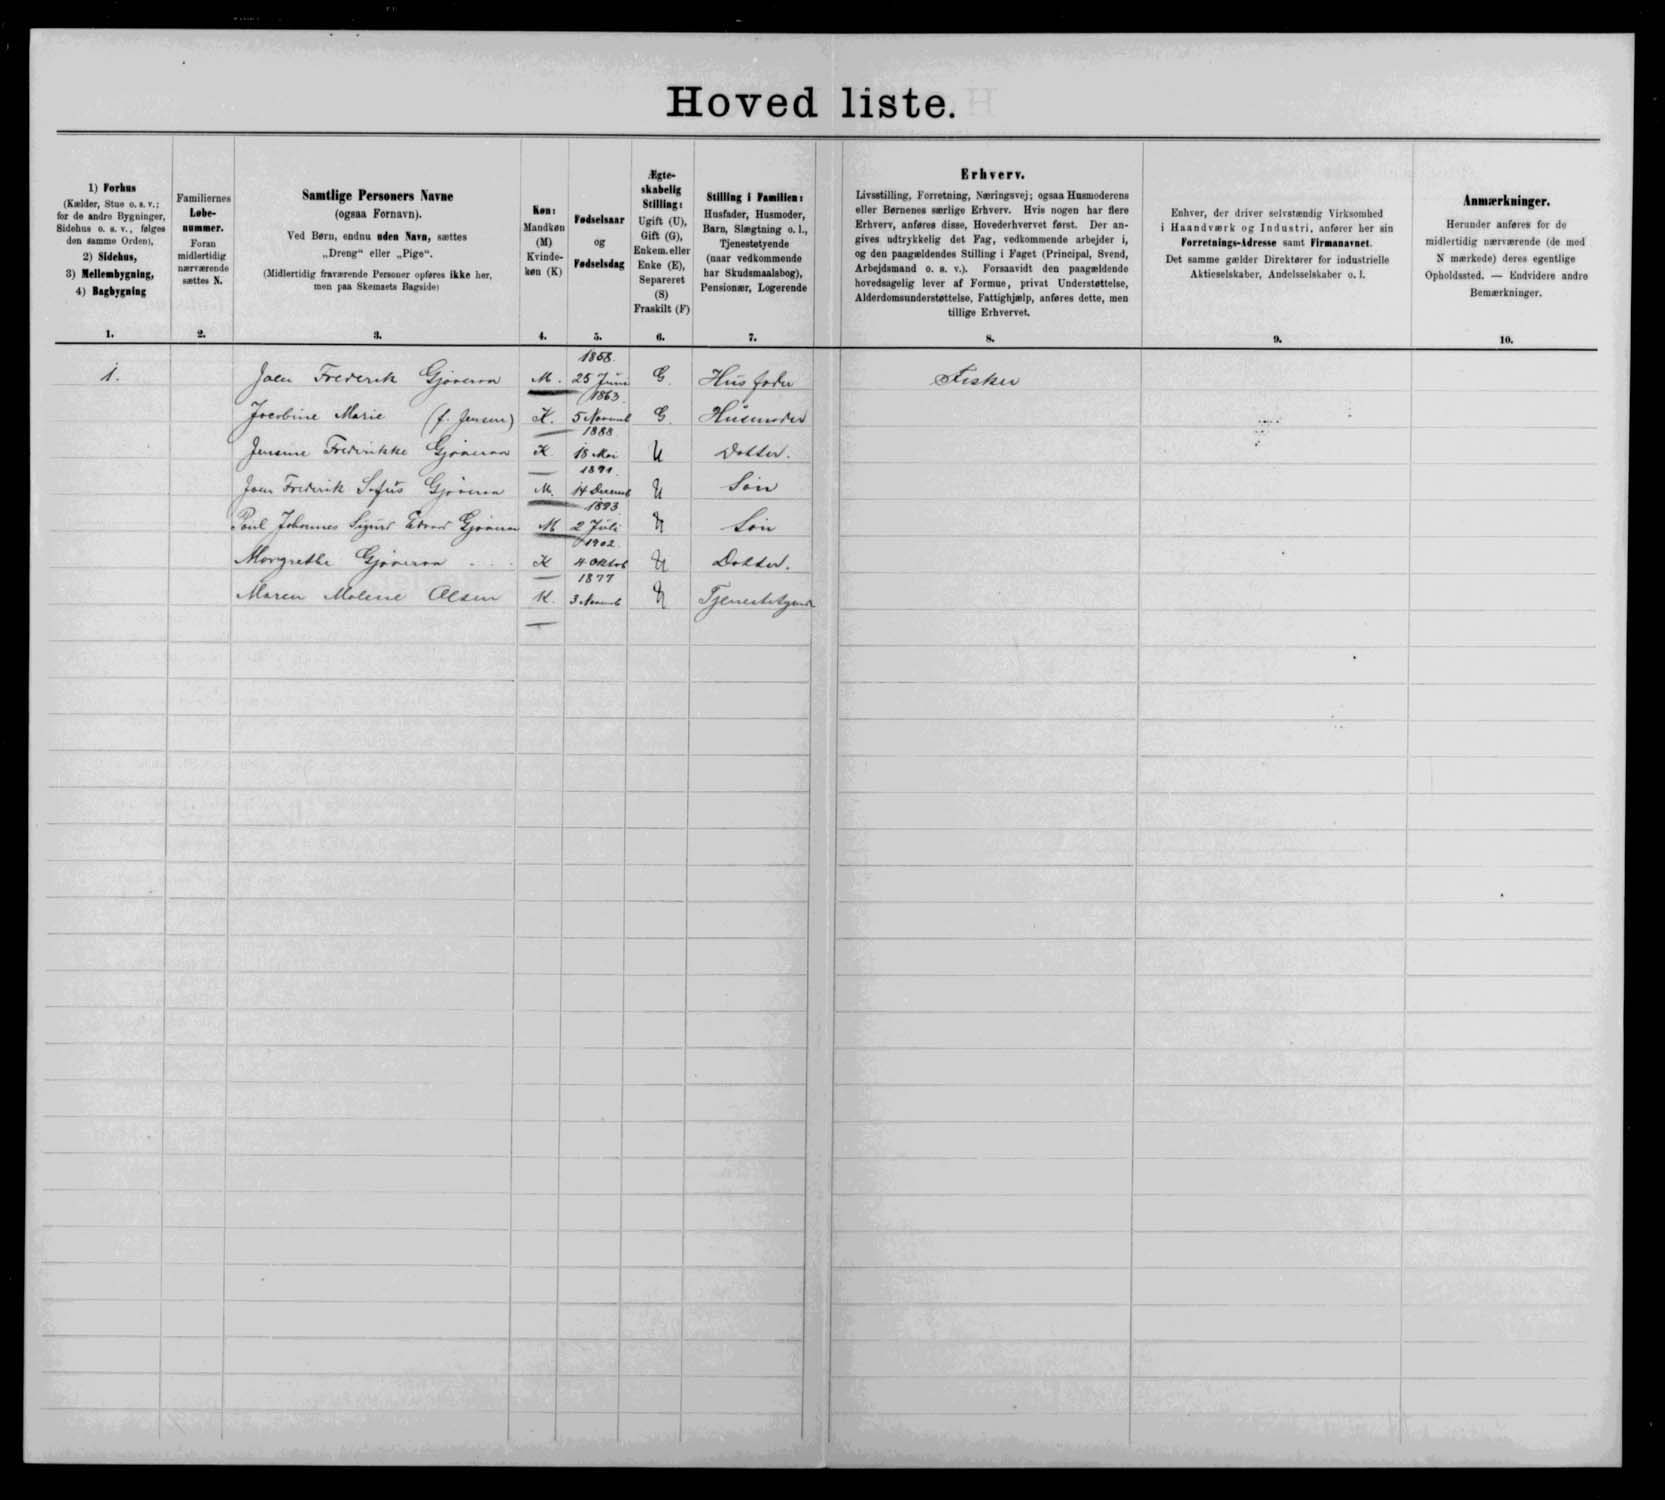 Hovedliste.
1) Forhus
(Kælder, Stue o. s. v.;
for de andre Bygninger,
Sidehus o. s. v., følges
den samme Orden),
2) Sidehus,
3) Mellembygning,
4) Bagbygning
1.
Familiernes
Løbe-
nummer.
Foran
midlertidig
nærværende
sættes N.
2.
Samtlige Personers Navne
(ogsaa Fornavn).
Ved Børn, endnu uden Navn, sættes
„Dreng” eller „Pige”.
(Midlertidig fraværende Personer opføres ikke her,
men paa Skemaets Bagside)
3.
Køn:
Mandkøn
(M)
Kvinde-
køn (K)
4.
Fødselsaar
og
Fødselsdag
5.
Ægte-
skabelig
Stilling:
Ugift (U),
Gift (G),
Enkem. eller
Enke (E),
Separeret
(S)
Fraskilt (F)
6.
Stilling i Familien:
Husfader, Husmoder,
Barn, Slægtning o. l.,
Tjenestetyende
(naar vedkommende
har Skudsmaalsbog),
Pensionær, Logerende
7.
Erhverv.
Livsstilling, Forretning, Næringsvej; ogsaa Husmoderens
eller Børnenes særlige Erhverv. Hvis nogen har flere
Erhverv, anføres disse, Hovederhvervet først. Der an-
gives udtrykkelig det Fag, vedkommende arbejder i,
og den paagældendes Stilling i Faget (Principal, Svend,
Arbejdsmand o. s. v.). Forsaavidt den paagældende
hovedsagelig lever af Formue, privat Understøttelse,
Alderdomsunderstøttelse, Fattighjælp, anføres dette, men
tillige Erhvervet.
8.
Enhver, der driver selvstændig Virksomhed
i Haandværk og Industri, anfører her sin
Forretnings-Adresse samt Firmanavnet.
Det samme gælder Direktører for industrielle
Aktieselskaber, Andelsselskaber o. l.
9.
Anmærkninger.
Herunder anføres for de
midlertidig nærværende (de med
N mærkede) deres egentlige
Opholdssted. — Endvidere andre
Bemærkninger.
10.
1. Joen Frederik Gjøveraa M. 1858. 25 Juni G. Husfader Fisker
Jacobine Marie (f. Jensen) K. 1863. 5 Novemb G. Husmoder
Jensine Frederikke Gjøveraa K 1888 18 Mai U Datter.
Joen Frederik Sofus Gjøveraa M. 1891. 14 Decemb U Søn
Poul Johannes Sigurd Edvard Gjøveraa M 1893 2 Juli U Søn
Margrethe Gjøveraa K 1902. 4 Oktob U Datter.
Maren Malene Olsen K. 1877 3 Novemb U Tjenestetyende